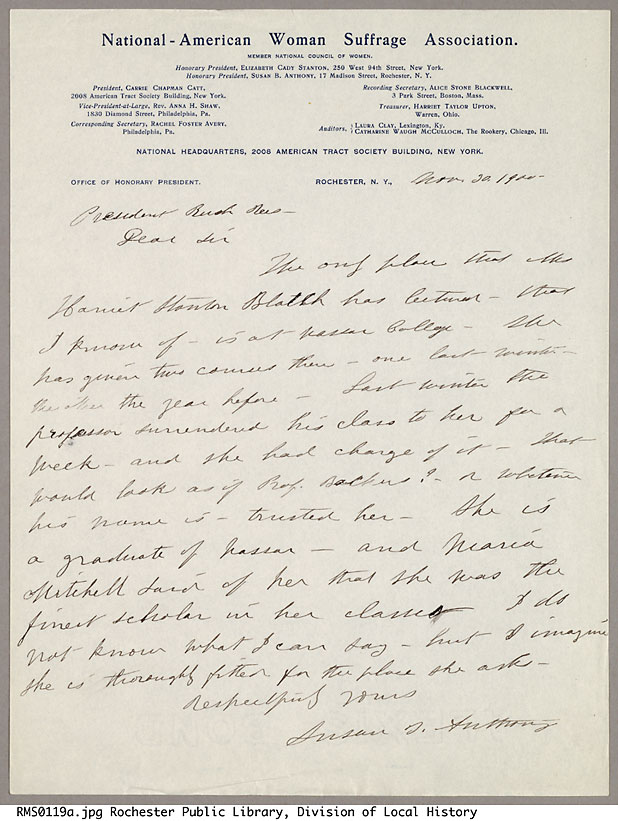 National-American Woman Suffrage Association.
MEMBER NATIONAL COUNCIL OF WOMEN.
Honorary President, ELIZABETH CADY STANTON, 250 West 94th Street, New York.
Honorary President, SUSAN B. ANTHONY, 17 Madison Street, Rochester, N. Y.
President, CARRIE CHAPMAN CATT,
2008 American Tract Society Building, New York.
Vice-President-at-Large, REV. ANNA H. SHAW,
1830 Diamond Street, Philadelphia, Pa.
Corresponding Secretary, RACHEL FOSTER AVERY,
Philadelphia, Pa.
Recording Secretary, ALICE STONE BLACKWELL,
3 Park Street, Boston, Mass.
Treasurer, HARRIET TAYLOR UPTON,
Warren, Ohio.
Auditors, { LAURA CLAY, Lexington, Ky.
CATHARINE WAUGH MCCULLOCH, The Rookery, Chicago, Ill.
NATIONAL HEADQUARTERS, 2008 AMERICAN TRACT SOCIETY BUILDING, NEW YORK.
OFFICE OF HONORARY PRESIDENT.
ROCHESTER, N. Y., Nov. 20. 1900-
President Rush Rees-
Dear Sir
The only place that Mrs
Harriet Stanton Blatch has lectured - that
I know of - is at Vassar College - She
has given two courses there - one last winter-
the other the year before - Last winter the
professor surrendered his class to her for a
week - and she had charge of it - That
would look as if Prof. Backus? - or whatever
his name is - trusted her - She is
a graduate of Vassar - and Maria
Mitchell said of her that she was the
finest scholar in her class I do
not know what I can say - but I imagine
she is thoroughly fitted for the place she asks-
Respectfully yours
Susan B. Anthony
RMS0119a.jpg Rochester Public Library, Division of Local History